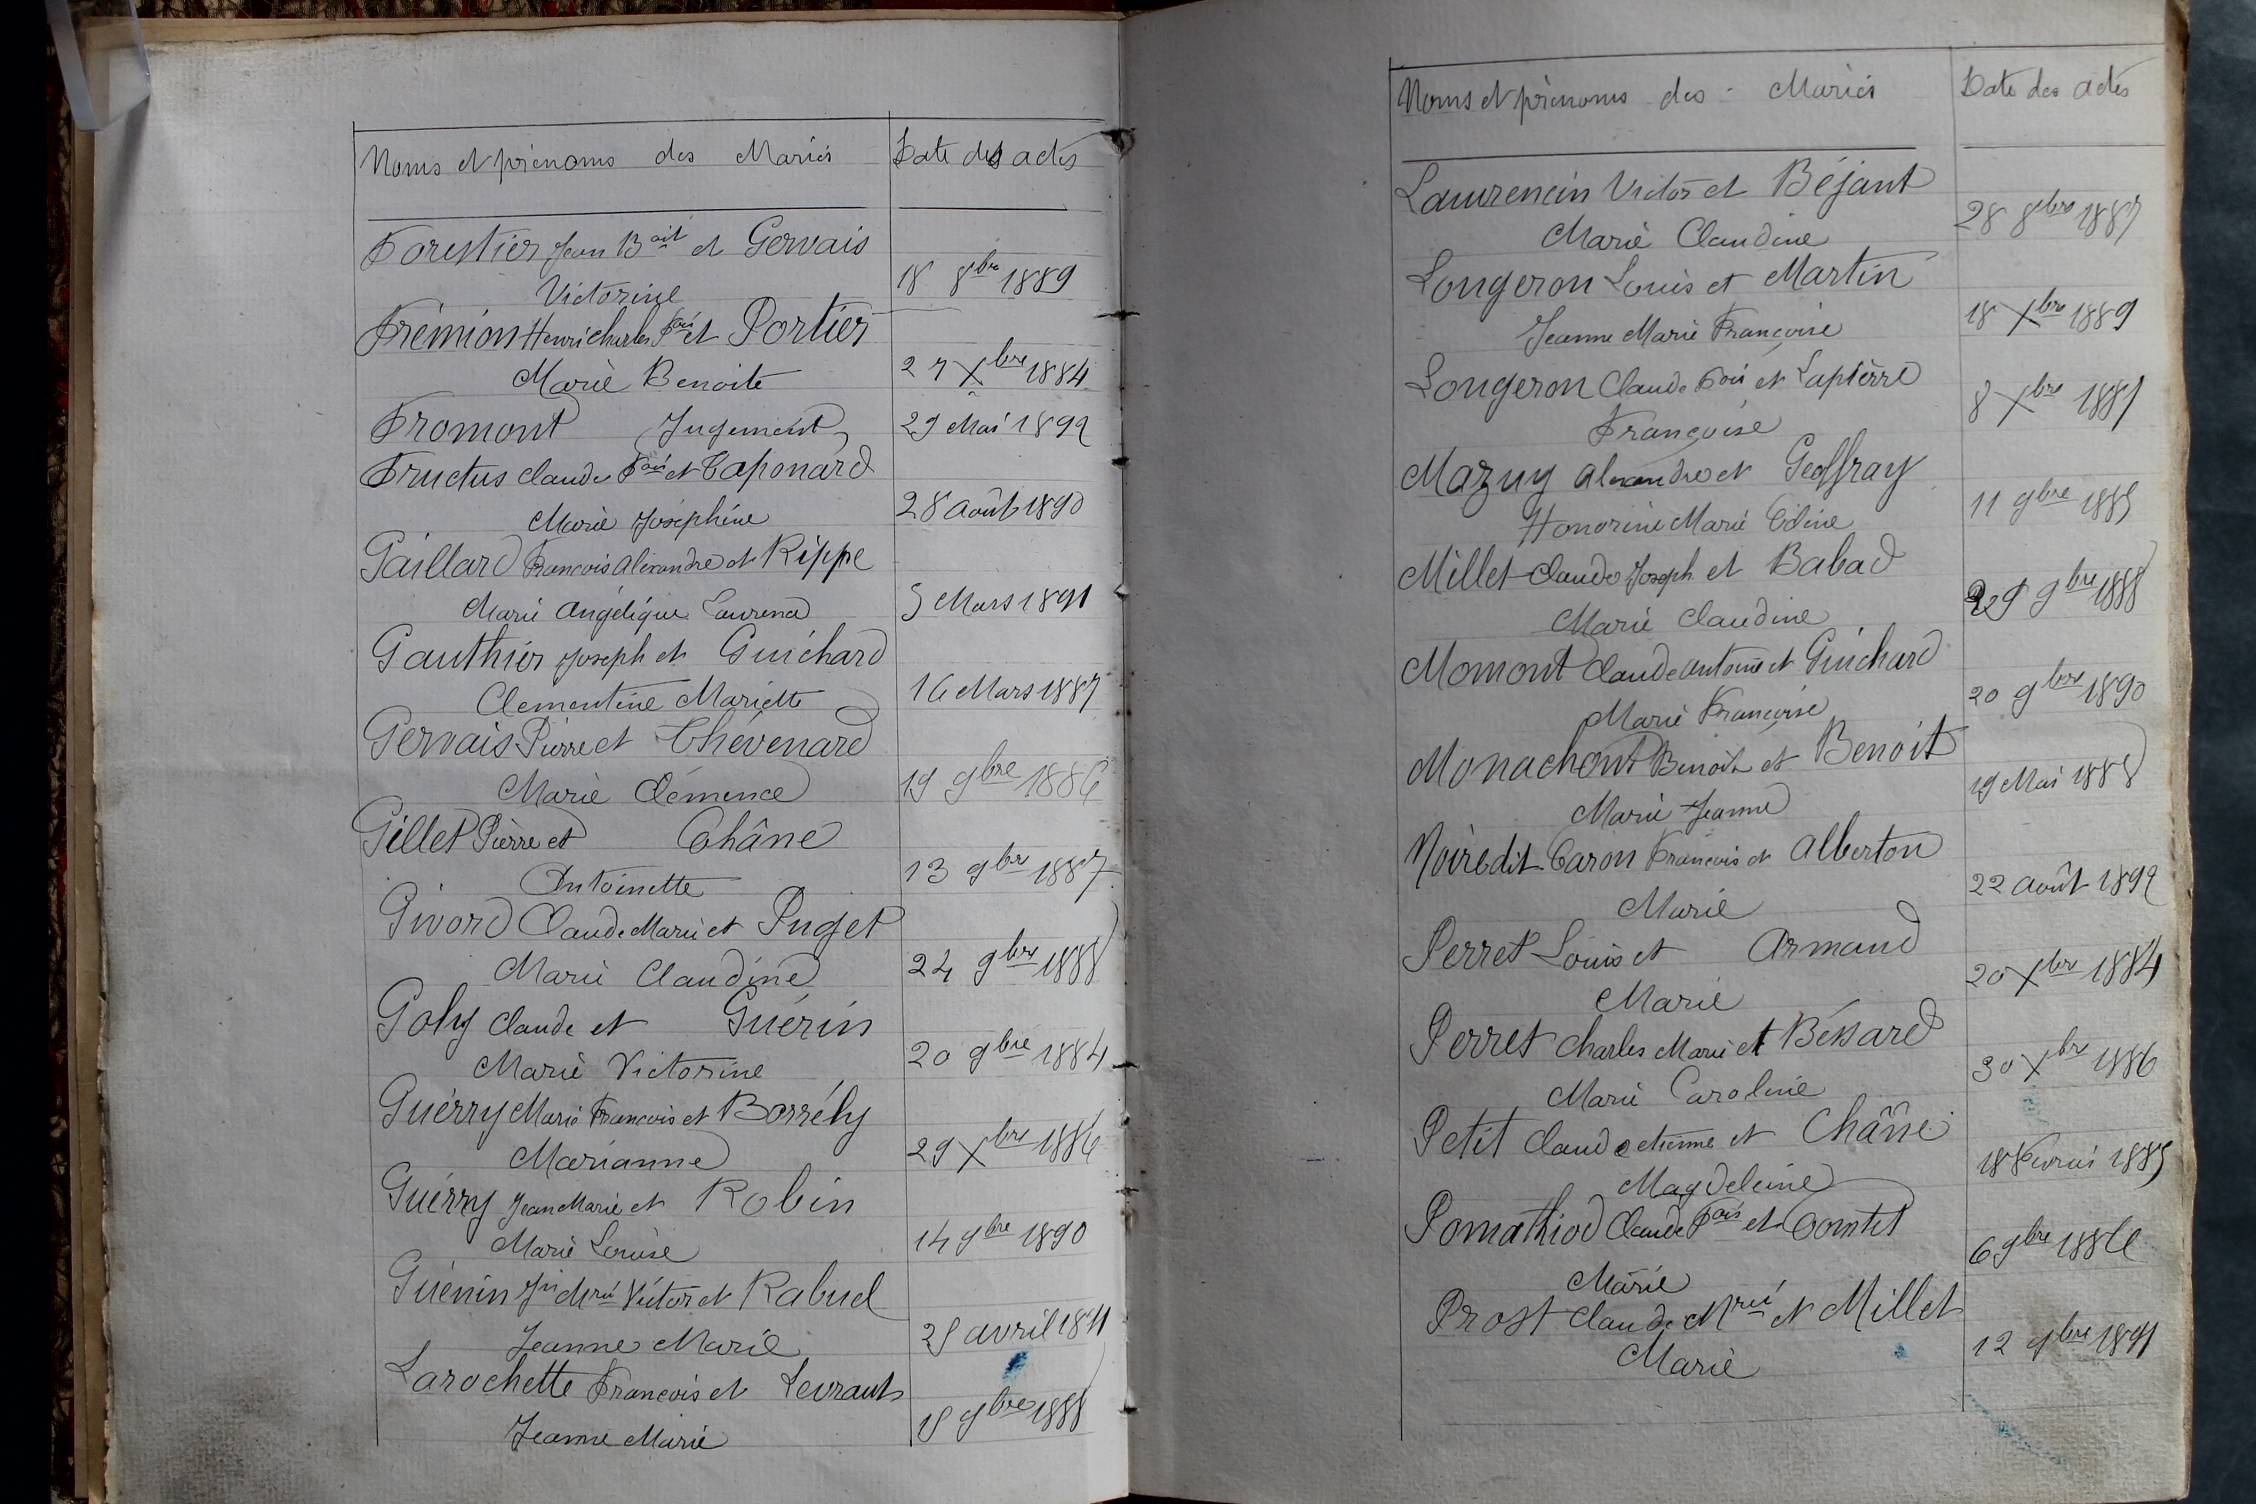 Noms et prénoms des Mariés Date des actes
Forestier Jean Bait et Gervais
Victorine 18 8bre 1889
Frémion Henri Charles Fois et Portier
Marie Benoite 27 Xbre 1884
Fromont (Jugement) 29 Mai 1892
Fructus Claude Fois et Taponard
Marie Joséphine 28 Août 1890
Gaillard François Alexandre et Rippe
Marie Angélique Laurence 5 Mars 1891
Gauthier Joseph et Guichard
Clementine Mariette 16 Mars 1887
Gervais Pierre et Thévenard
Marie Clémence 19 9bre 1886
Gillet Pierre et Châne
Antoinette 13 9bre 1887
Givord Claude Marie et Puget
Marie Claudine 24 9bre 1888
Goly Claude et Guérin
Marie Victorine 20 9bre 1884
Guérry Marie François et Borrély
Marianne 29 Xbre 1886
Guérry Jean Marie et Robin
Marie Louise 14 9bre 1890
Guénin Jn Mrie Victor et Rabuel
Jeanne Marie avril 1891
Larochette François et Levraut
Jeanne Marie 9bre 1888
Noms et prénoms des Mariés Date des actes
Laurencin Victor et Béjant
Marie Claudine 28 8bre 1887
Longeron Louis et Martin
Jeanne Marie Françoise 18 Xbre 1889
Longeron Claude Fois et Lapierre
Françoise 8 Xbre
Mazuy Alexandre et Geoffray
Honorine Marie Céline 11 9bre 1885
Millet Claude Joseph et Babad
Marie Claudine 29 9bre 1888
Momont Claude Antoine et Guichard
Marie Françoise 20 9bre 1890
Monachont Benoit et Benoit
Marie Jeanne 19 Mai 1888
Noire dit Caron François et Alberton
Marie 22 août 1892
Perret Louis et Armand
Marie 20 Xbre 1884
Perret Charles Marie et Béssard
Marie Caroline 30 Xbre 1886
Petit Claude etienne et Châne
Magdeleine 18 Février 1885
Pomathiod Claude Fois et Comtet
Marie 6 9bre 1886
Prost Claude Mrie et Millet
Marie 12 9bre 1891